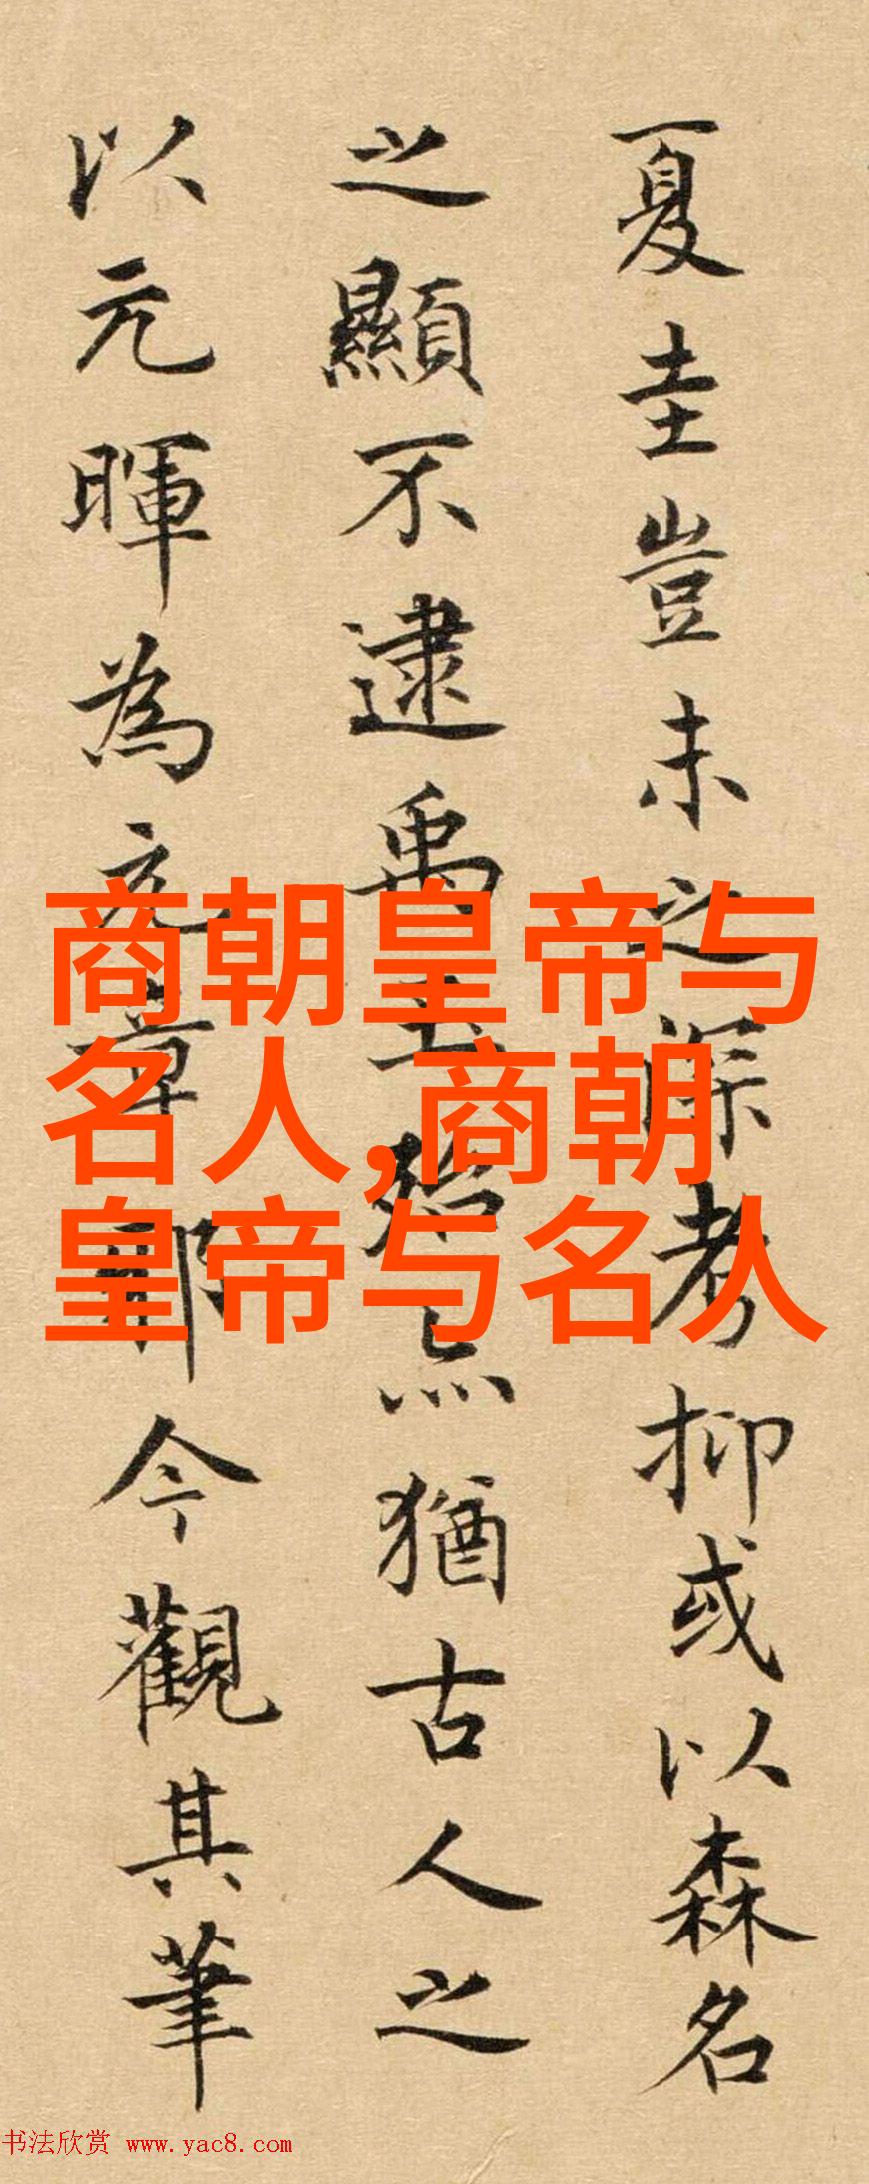 夏圭豈未之深考抑或以森名
之顯不逮禹玉殆亦猶古人之
以元暉為元章耶今觀其筆
商朝皇帝与
名人,商朝
皇帝与名人
书法欣赏 www.yac8.com